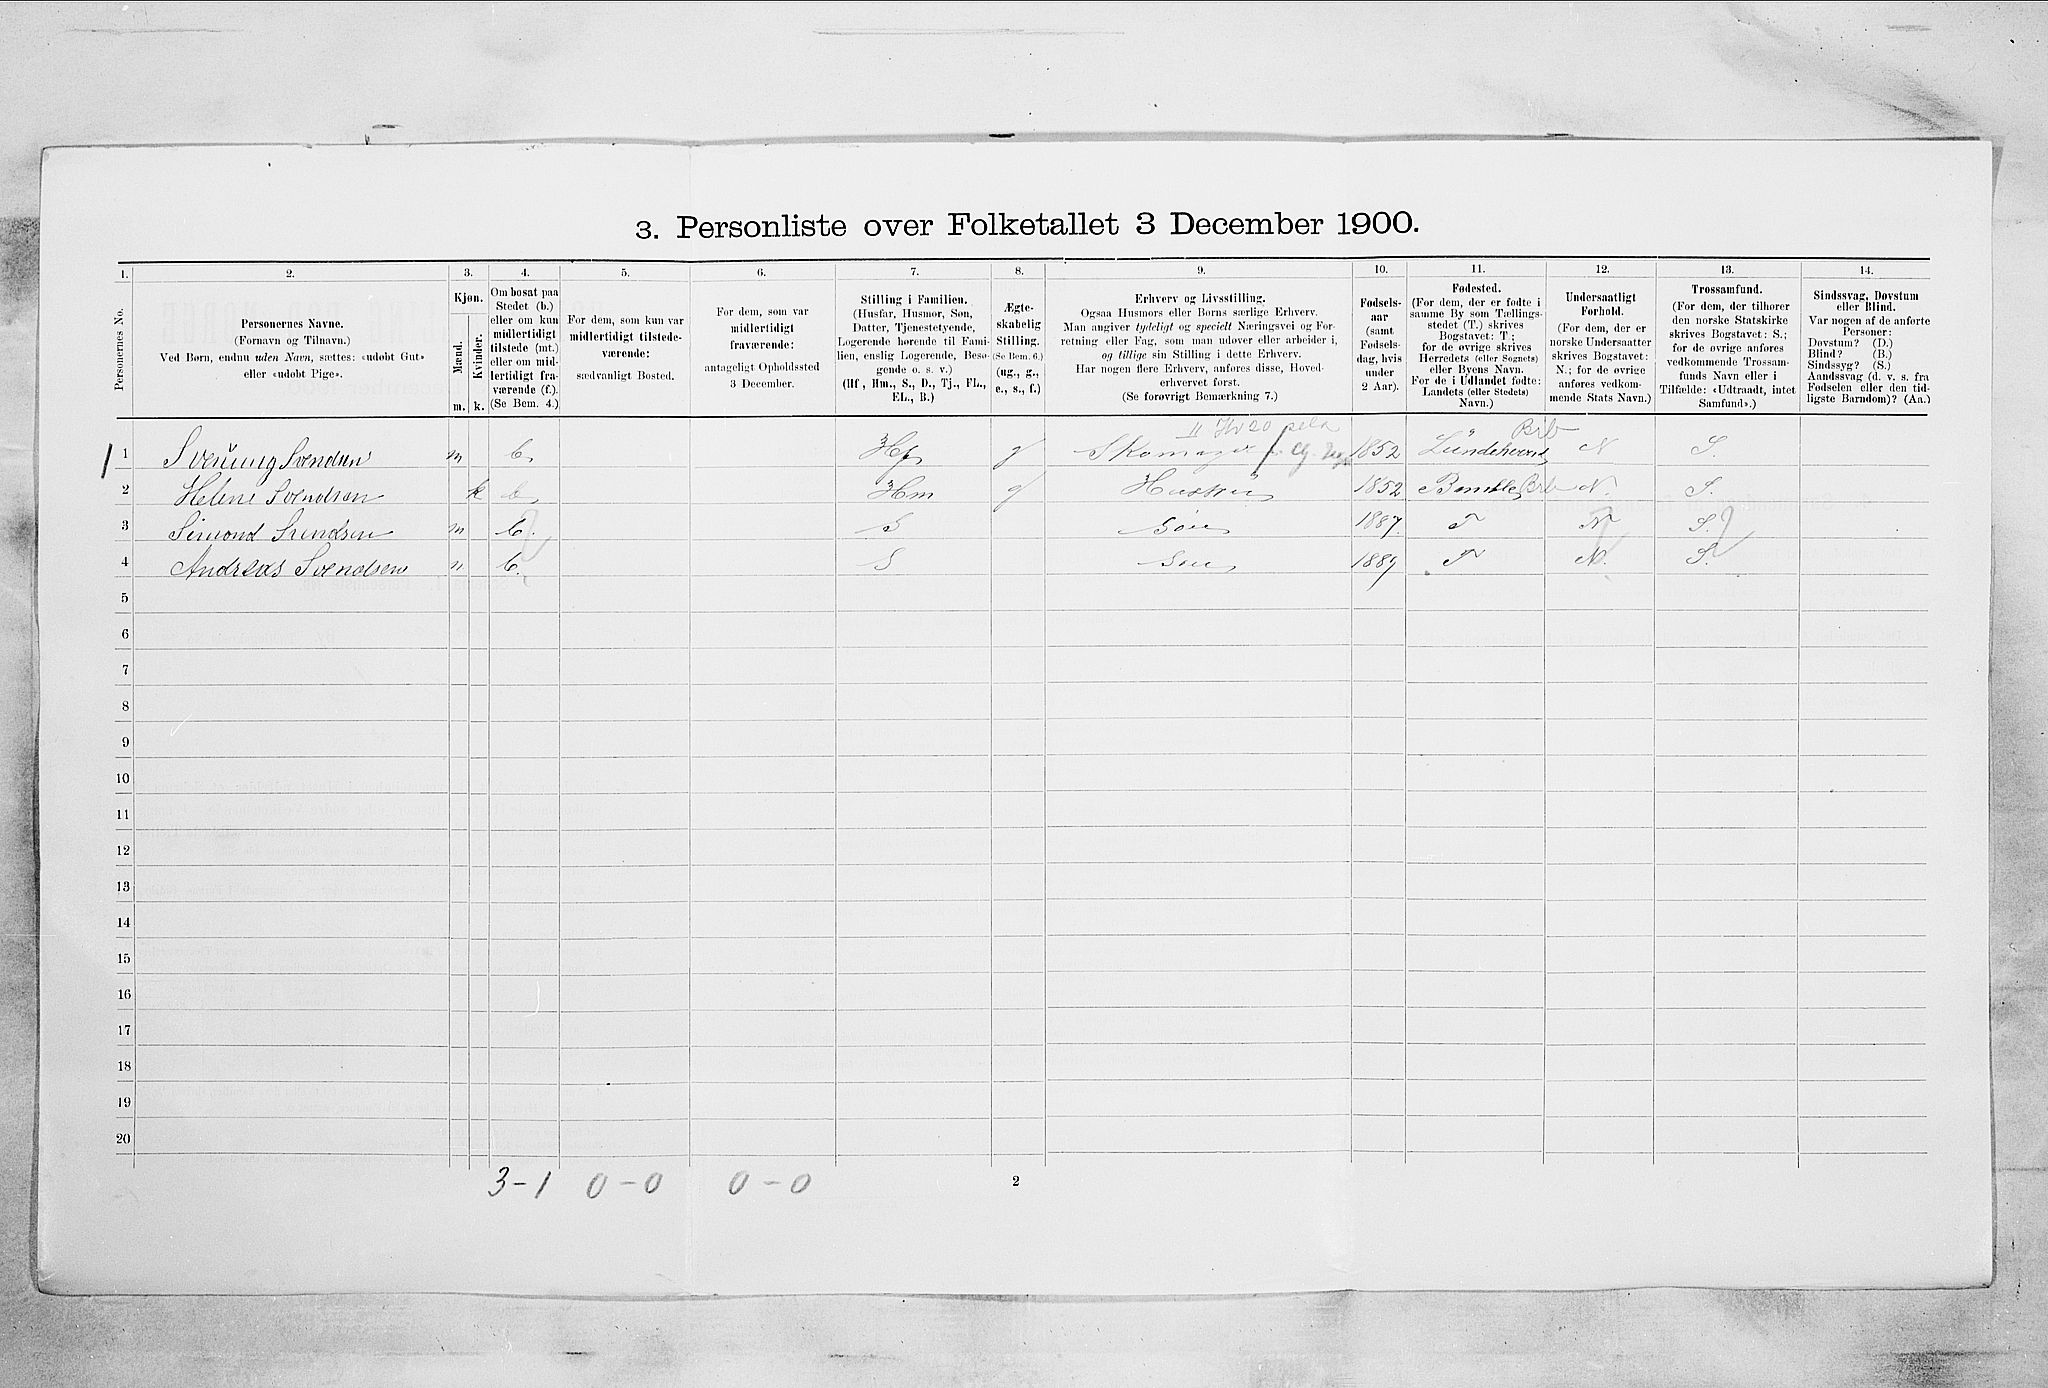 3. Personliste over Folketallet 3 December 1900.
1. 2. 3. 4. 5. 6. 7. 8. 9. 10. 11. 12. 13. 14.
Personernes No.
Personernes Navne.
(Fornavn og Tilnavn.)
Ved Børn, endnu uden Navn, sættes: «udøbt Gut»
eller «udøbt Pige».
Kjøn.
Mænd.
Kvinder.
m. k.
Om bosat paa
Stedet (b.)
eller om kun
midlertidigt
tilstede (mt.)
eller om mid-
lertidigt fra-
værende (f.).
(Se Bem. 4.)
For dem, som kun var
midlertidigt tilstede-
værende:
sædvanligt Bosted.
For dem, som var
midlertidigt
fraværende:
antageligt Opholdssted
3 December.
Stilling i Familien.
(Husfar, Husmor, Søn,
Datter, Tjenestetyende,
Logerende hørende til Fami-
lien, enslig Logerende, Besø-
gende o. s. v.)
(Hf, Hm., S., D., Tj., FL.,
EL., B.)
Ægte-
skabelig
Stilling.
(Se Bem. 6.)
(ug., g.,
e., s., f.)
Erhverv og Livsstilling.
Ogsaa Husmors eller Børns særlige Erhverv.
Man angiver tydeligt og specielt Næringsvei og For-
retning eller Fag, som man udøver eller arbeider i,
og tillige sin Stilling i dette Erhverv.
Har nogen flere Erhverv, anføres disse, Hoved-
erhvervet først.
(Se forøvrigt Bemærkning 7.)
Fødsels-
aar
(samt
Fødsels-
dag, hvis
under
2 Aar).
Fødested.
(For dem, der er fødte i
samme By som Tællings-
stedet (T.) skrives
Bogstavet: T.;
for de øvrige skrives
Herredets (eller Sognets)
eller Byens Navn.
For de i Udlandet fødte:
Landets (eller Stedets)
Navn.)
Undersaatligt
Forhold.
(For dem, der er
norske Undersaatter
skrives Bogstavet:
N.; for de øvrige
anføres vedkom-
mende Stats Navn.)
Trossamfund.
(For dem, der tilhører
den norske Statskirke
skrives Bogstavet: S.;
for de øvrige anføres
vedkommende Trossam-
funds Navn eller i
Tilfælde: «Udtraadt, intet
Samfund».)
Sindssvag, Døvstum
eller Blind.
Var nogen af de anførte
Personer:
Døvstum? (D.)
Blind? (B.)
Sindssyg? (S.)
Aandssvag (d. v. s. fra
Fødselen eller den tid-
ligste Barndom)? (Aa.)
1 1 Svenung Svendsen m b. Hf g Skomager 1852 N S.
2 Helene Svendsen k b. Hm g Hustru 1852 Bamble Brb N. S.
3 Simond Svendsen m b. S Søn 1887. T N S.
4 Andreas Svendsen m b. S Søn 1889 T N. S.
5
6
7
8
9
10
11
12
13
14
15
16
17
18
19
20
3-1 0-0 0-0 2